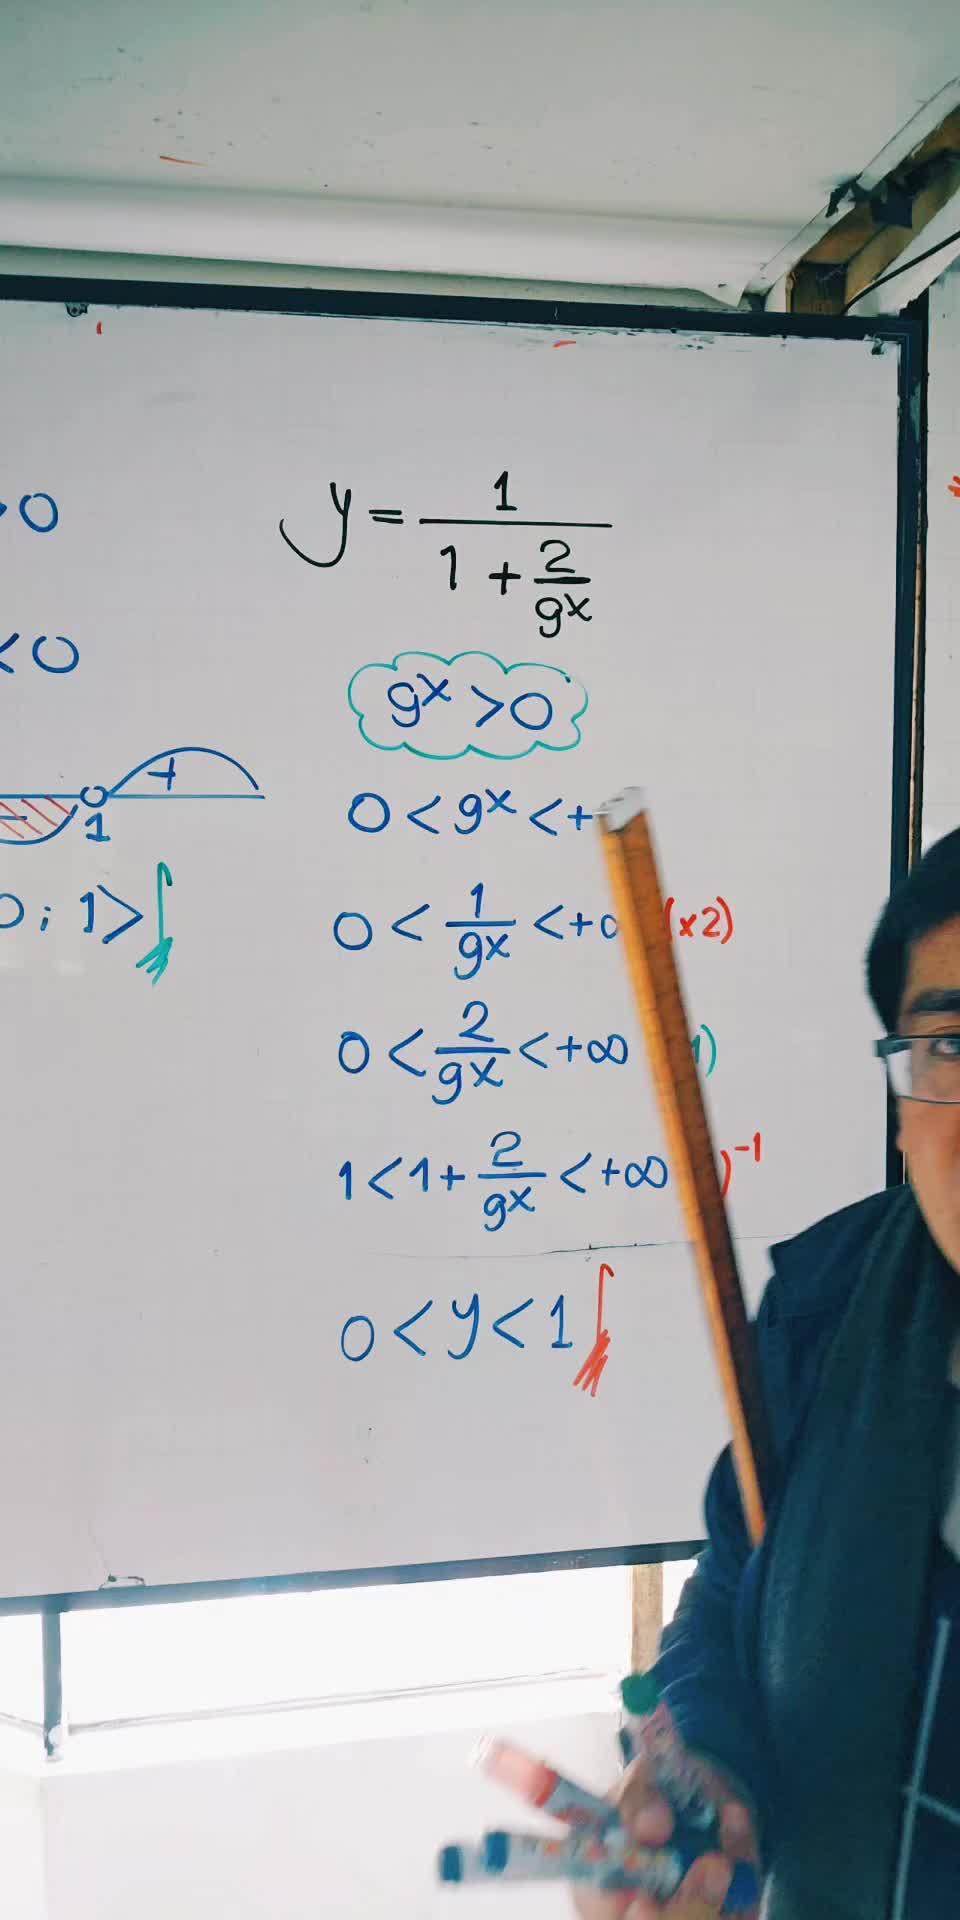 >0
<0
+
1
0 ; 1>
y = 1 / (1 + 2/9^x)
9^x > 0
0 < 9^x < +
0 < 1/9^x < +∞ (x2)
0 < 2/9^x < +∞ 1)
1 < 1 + 2/9^x < +∞ )^-1
0 < y < 1